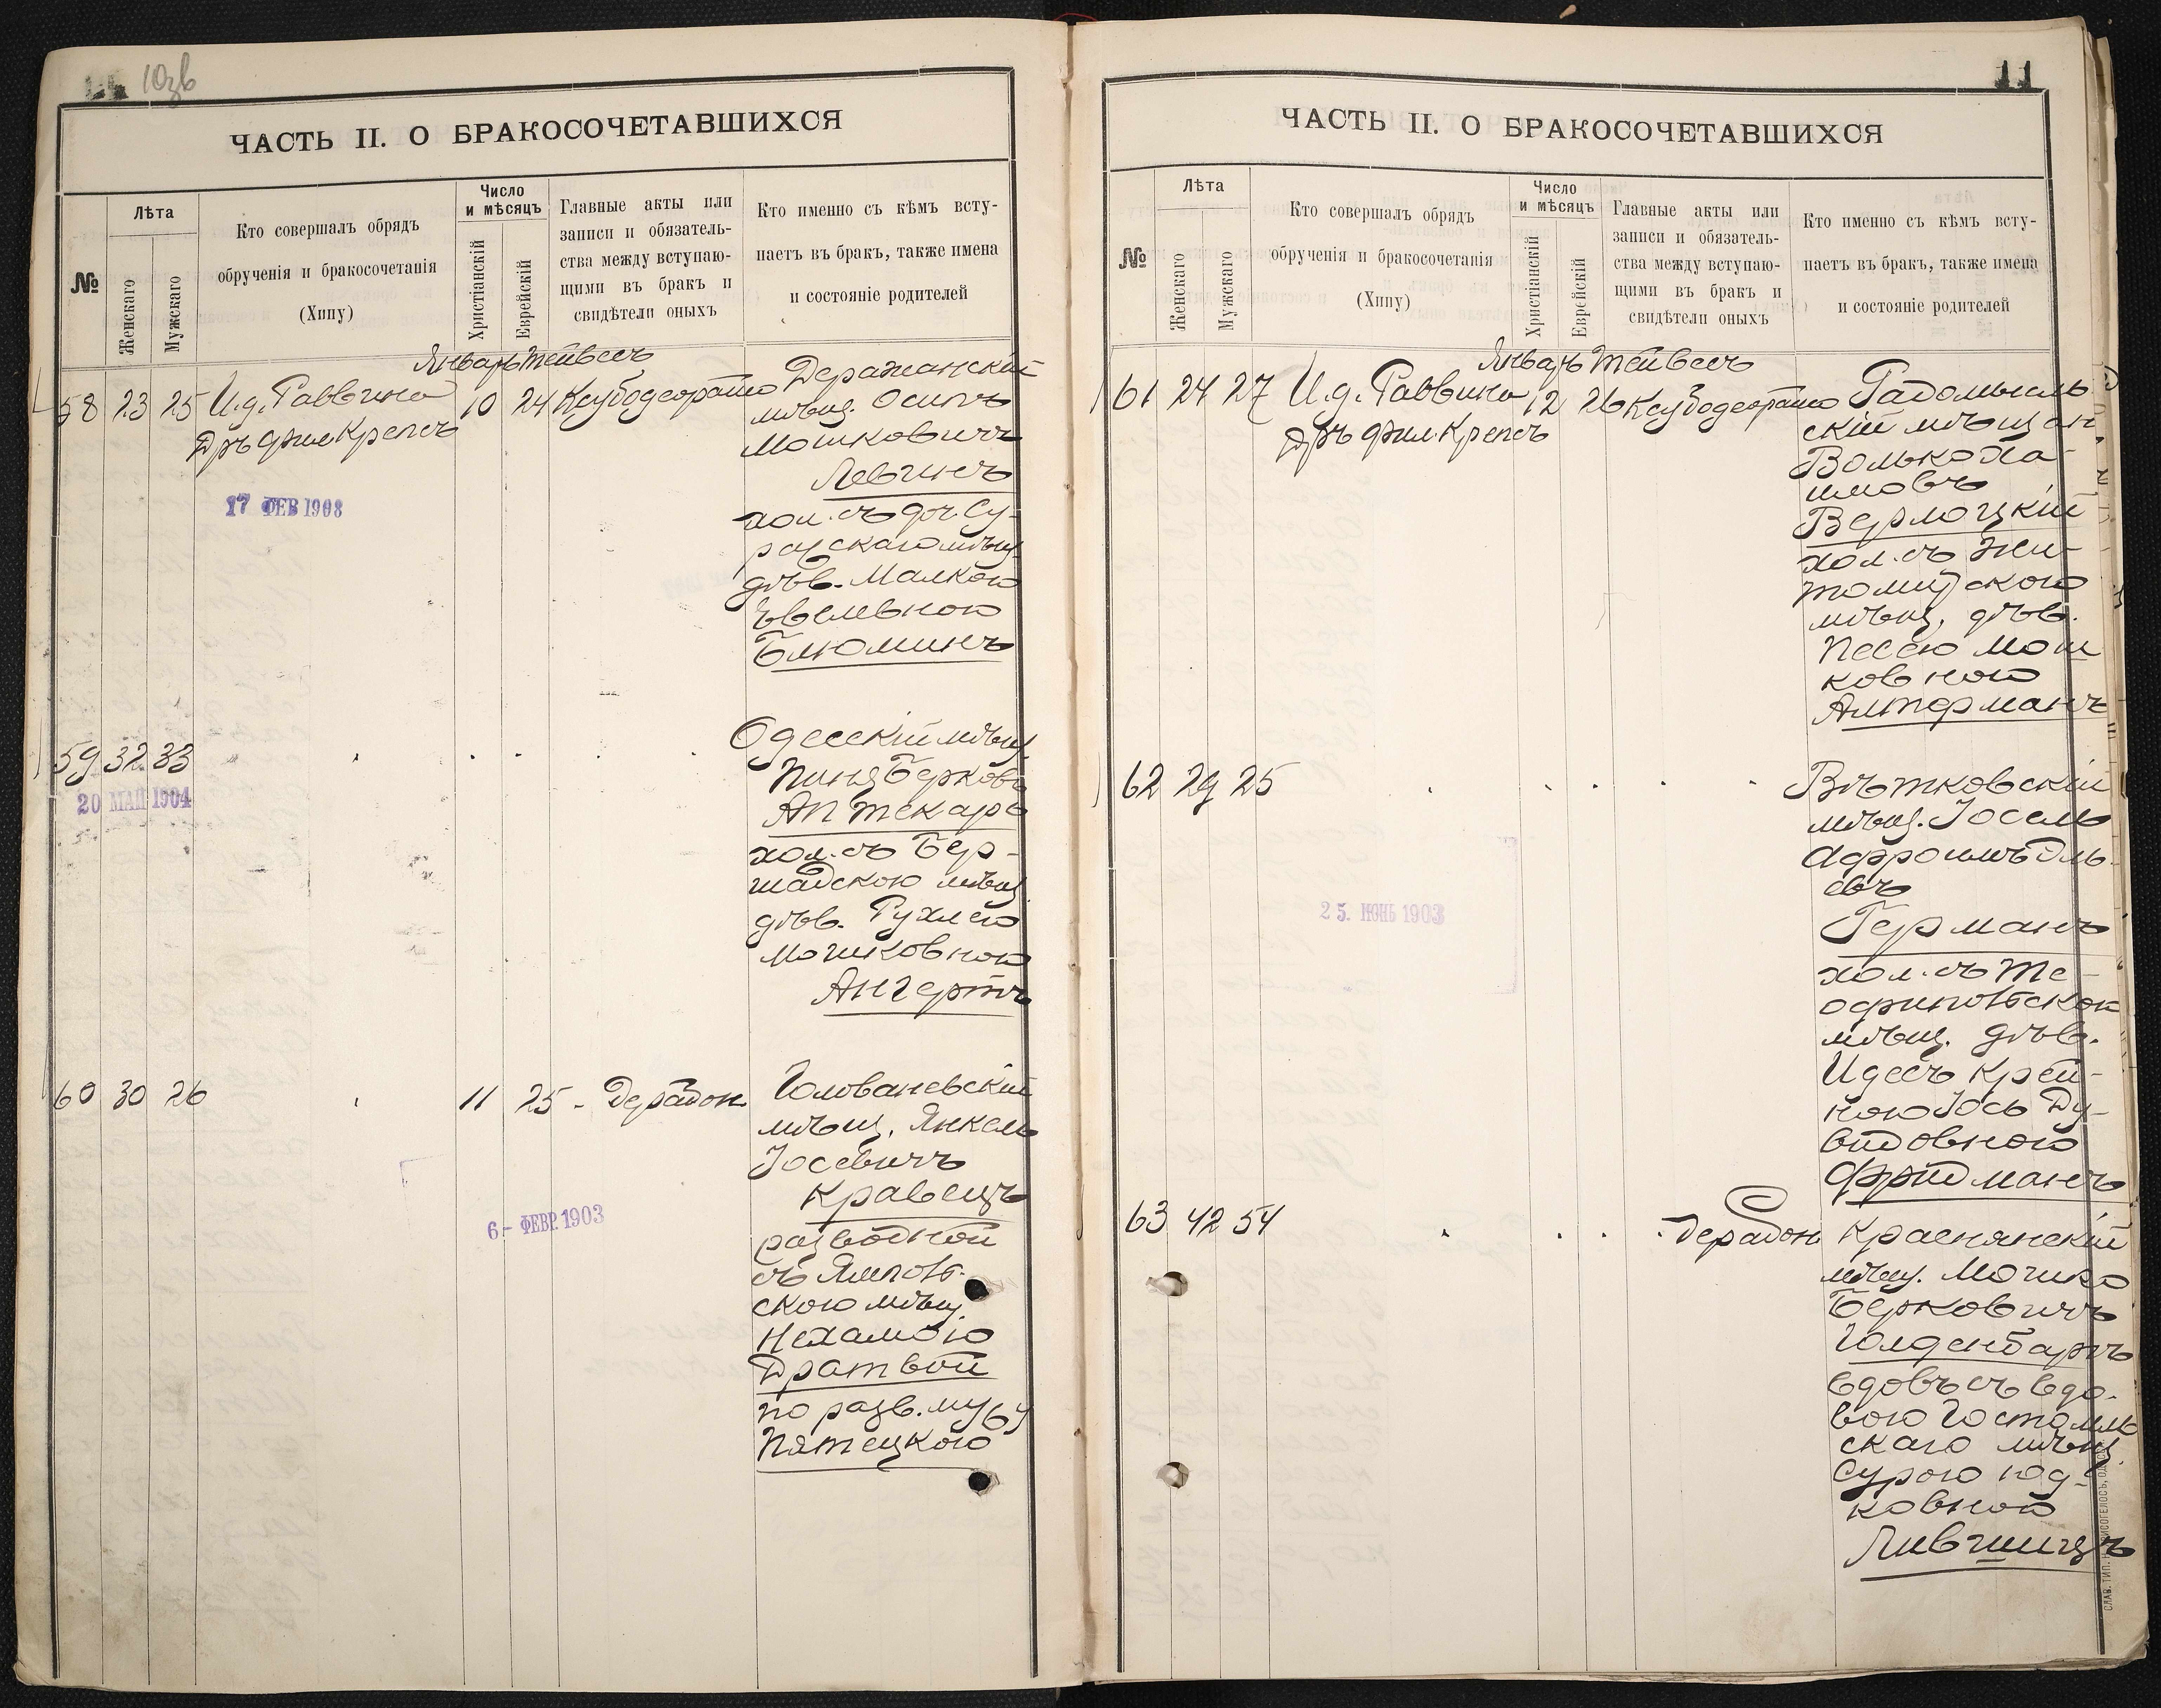 10об
ЧАСТЬ II. О БРАКОСОЧЕТАВШИХСЯ
№
Лѣта
Женскаго
Мужскаго
Кто совершалъ обрядъ
обрученія и бракосочетанія
(Хипу)
Число
и мѣсяцъ
Христіанскій
Еврейскій
Главные акты или
записи и обязатель-
ства между вступаю-
щими въ бракъ и
свидѣтели оныхъ
Кто именно съ кѣмъ всту-
паетъ въ бракъ, также имена
и состояніе родителей
Январь Тейвесъ
58 23 25 И.д. Раввина 10 24 Ксубодеорайто Деражанскій
Дръ фил Крепсъ
мѣщ. Осипъ
Мошковичъ
Левинъ
хол. съ доч. Су-
ражскаго мѣщ.
дѣв. Малкою
Евелевною
Блюминъ
17 ФЕВ 1903
59 32 33
Одесскій мѣщ.
Пиня Берковъ
Аптекарь
хол. съ Бер-
шадскою мѣщ
дѣв. Рухлею
Мошковною
Ангертъ
20 МАЙ 1904
60 30 26 11 25 - Дерабон Голованевскій
мѣщ. Янкель
Іосевичъ
Кравецъ
разводной
съ Ямполь-
скою мѣщ
Нехамою
Дратвой
по разв. мужу
Пятецкою
6- ФЕВР. 1903
11
ЧАСТЬ II. О БРАКОСОЧЕТАВШИХСЯ
№
Лѣта
Женскаго
Мужскаго
Кто совершалъ обрядъ
обрученія и бракосочетанія
(Хипу)
Число
и мѣсяцъ
Христіанскій
Еврейскій
Главные акты или
записи и обязатель-
ства между вступаю-
щими въ бракъ и
свидѣтели оныхъ
Кто именно съ кѣмъ всту-
паетъ въ бракъ, также имена
и состояніе родителей
Январь Тейвесъ
61 24 27 И.д. Раввина 12 26 Ксубодеорайто Радомысль
Дръ фил. Крепсъ
скій мѣщан
Волько Ха-
имовъ
Верлоцкій
хол. съ Жи-
томирскою
мѣщ. дѣв.
Песею Мош
ковною
Алтерманъ
62 29 25
Вѣтковскій
мѣщ. Іосель
Афроимъ Эль-
евъ
Германъ
хол. съ Те-
офипольскою
мѣщ. дѣв.
Идесъ Крей-
ною Іось Ду-
видовною
Фридманъ
25. ІЮНЬ 1903
63 42 54 Дерабон Краснянскій
мѣщ. Мошко
Берковичъ
Голденбаргъ
вдовъ съ вдо-
вою Гостомль
скаго мѣщ
Сурою Юд-
ковной
Лившицъ